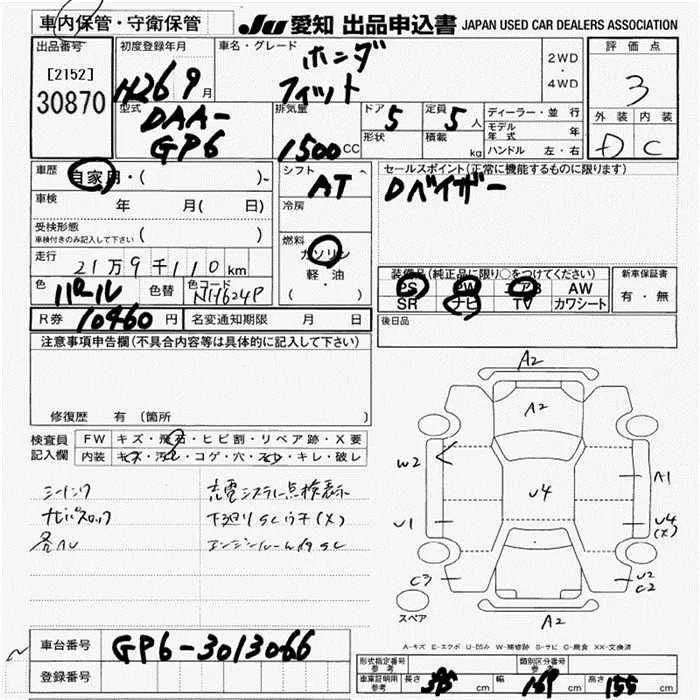 車内保管・守衛保管
JU 愛知 出品申込書 JAPAN USED CAR DEALERS ASSOCIATION
出品番号
[2152]
30870
初度登録年月
H26 9月
車名・グレード
ホンダ
フィット
2WD
・
4WD
評価点
3
外装 内装
D C
型式
DAA-
GP6
排気量
1500CC
ドア 5
形状
定員 5人
積載 kg
ディーラー・並行
モデル年式 年
ハンドル 左・右
車歴
自家用・( )
車検 年 月( 日)
受検形態
車検付きのみ記入して下さい ( )
走行
21万9千110km
色
パール
色替
色コード
NH624P
シフト
AT
冷房
燃料
ガソリン
軽・油
( ・ )
セールスポイント(正常に機能するものに限ります)
Dバイザー
装備品(純正品に限り○をつけてください)
PS PW エアB AW
SR ナビ TV カワシート
新車保証書
有・無
R券 10460円
名変通知期限 月 日
後日品
注意事項申告欄(不具合内容等は具体的に記入して下さい)
修復歴 有(箇所 )
検査員記入欄
FW キズ・飛石・ヒビ割・リペア跡・X要
内装 キズ・汚レ・コゲ・穴・スレ・キレ・破レ
充電システム点検表示
下廻りSCウチ(X)
各ヘコ
エンジンルーム内SC
A2
A2
W2
A1
U4
U1
U4
(X)
C3
U2
C2
スペア
A2
A-キズ E-エクボ U-凹み W-補修跡 S-サビ C-腐食 XX-交換済
車台番号
GP6-3013066
登録番号
形式指定番号
参考
類別区分番号
参考
車庫証明用
参考
長さ 395 cm
幅 169 cm
高さ 155 cm